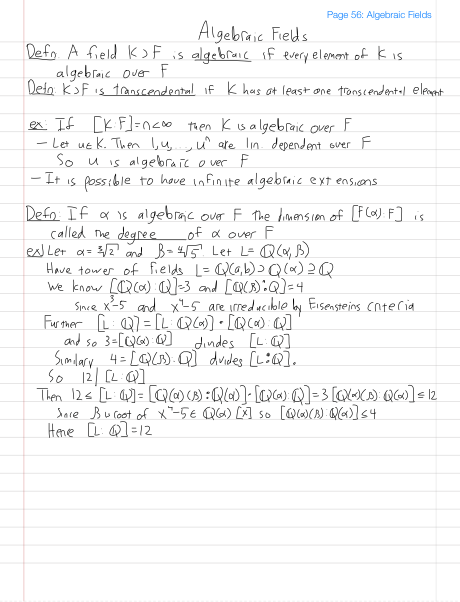 Page 56: Algebraic Fields
Algebraic Fields
Defn A field K ⊃ F is algebraic if every element of K is
algebraic over F
Defn: K ⊃ F is transcendental if K has at least one transcendental element
ex: If [K:F]=n<∞ then K is algebraic over F
- Let u∈K. Then 1, u, ..., uⁿ are lin. dependent over F
So u is algebraic over F
- It is possible to have infinite algebraic extensions
Defn: If α is algebraic over F the dimension of [F(α):F] is
called the degree of α over F
ex) Let α = ∛2 and β = ∜5. Let L = ℚ(α, β)
Have tower of fields L = ℚ(a,b) ⊃ ℚ(α) ⊇ ℚ
We know [ℚ(α):ℚ]=3 and [ℚ(β):ℚ]=4
Since x³-5 and x⁴-5 are irreducible by Eisensteins criteria
Further [L:ℚ] = [L:ℚ(α)]·[ℚ(α):ℚ]
and so 3=[ℚ(α):ℚ] divides [L:ℚ]
Similary 4=[ℚ(β):ℚ] divides [L:ℚ].
So 12 | [L:ℚ]
Then 12 ≤ [L:ℚ] = [ℚ(α)(β):ℚ(α)]·[ℚ(α):ℚ] = 3[ℚ(α)(β):ℚ(α)] ≤ 12
Since β is root of x⁴-5 ∈ ℚ(α)[x] so [ℚ(α)(β):ℚ(α)] ≤ 4
Hence [L:ℚ]=12